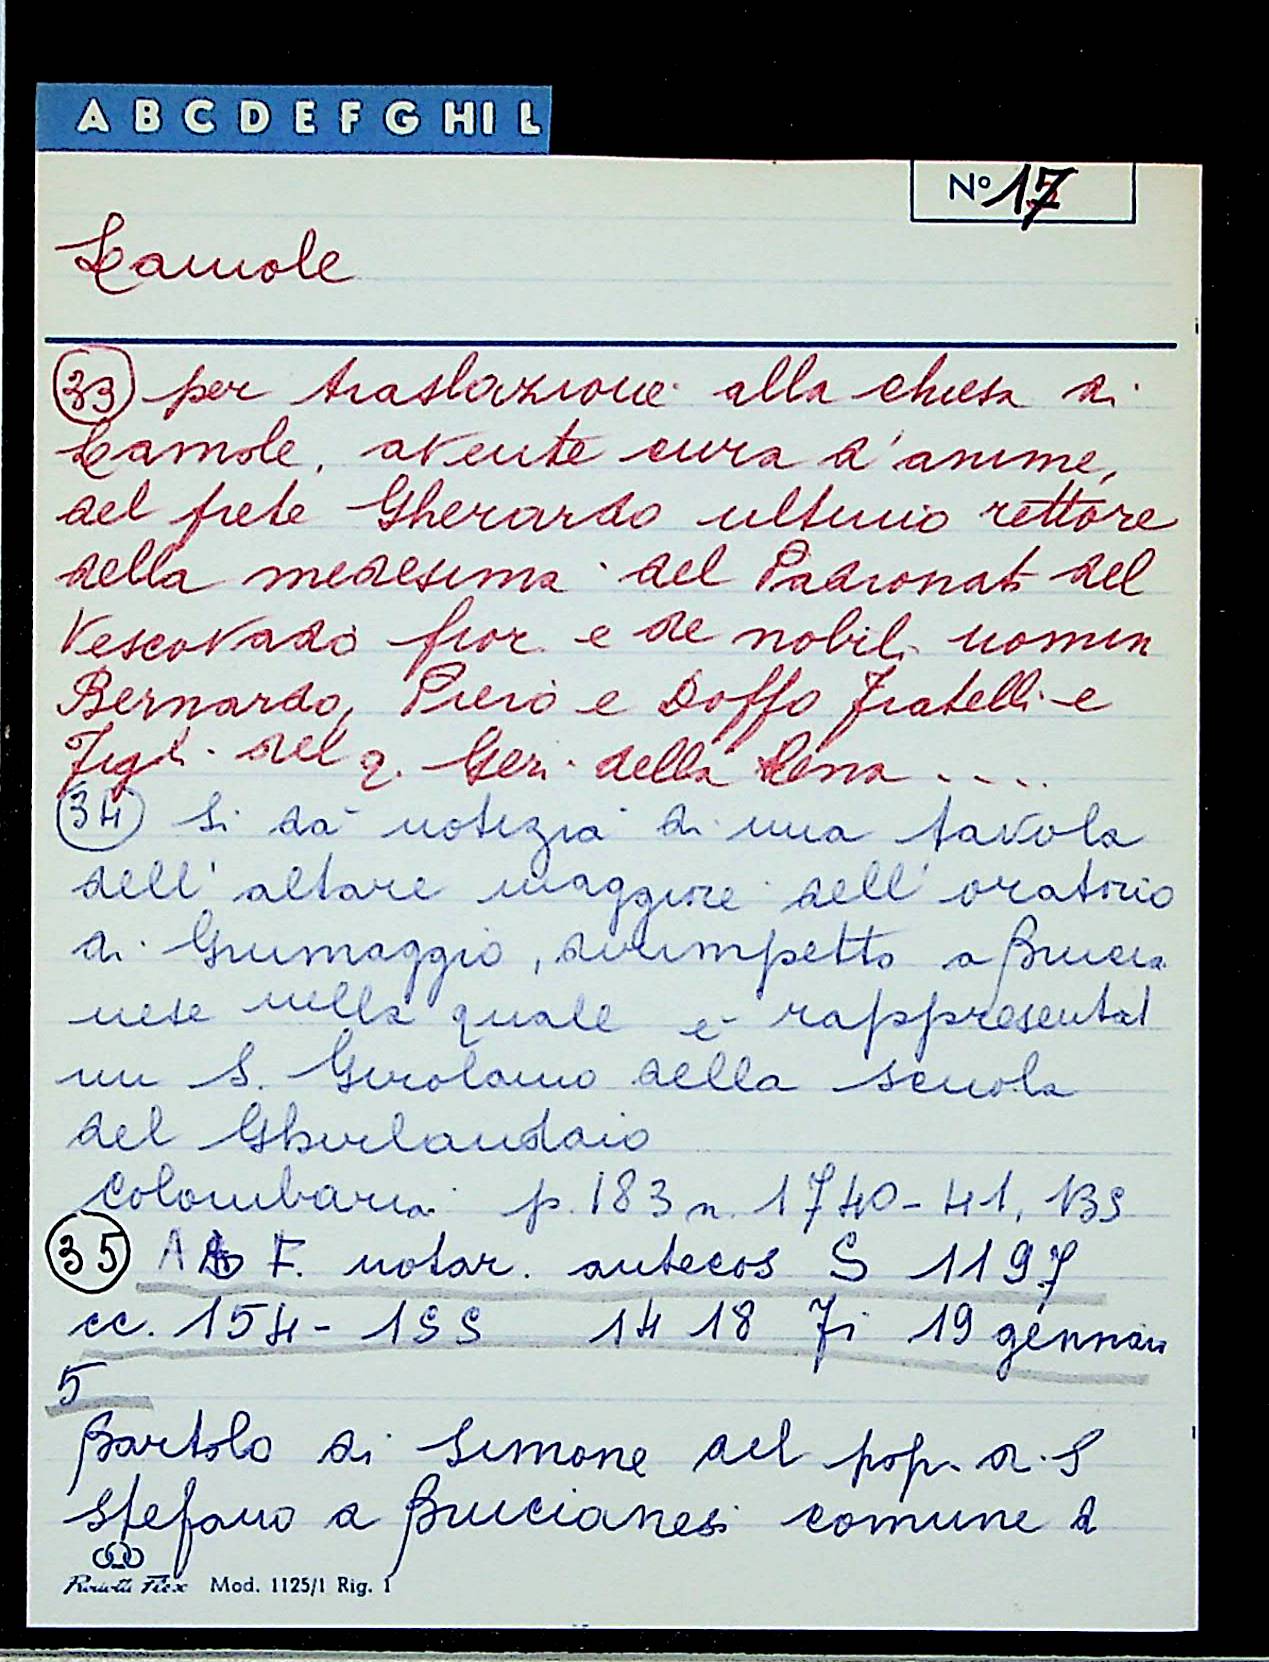 A B C D E F G HI L
N° 17
Lamole
33 per traslazione alla chiesa di
Lamole, avente cura d'anime,
del prete Gherardo ultimo rettore
della medesima del Padronato del
Vescovado fior. e de nobili uomin
Bernardo, Piero e Doffo Fratelli e
Figli del q. Geri della Rena ....
34 Si dà notizia di una tavola
dell'altare maggiore dell'oratorio
di Grumaggio, dirimpetto a Brucia
nese nella quale è rappresentat
un S. Girolamo della scuola
del Ghirlandaio
Colombaria p. 183 n. 1740-41, BS
35 AS F. notar. antecos S 1197
cc. 154-155 1418 Fi 19 gennaio
5
Bartolo di Simone del pop. di S
Stefano a Brucianesi comune d
Mod. 1125/1 Rig. 1